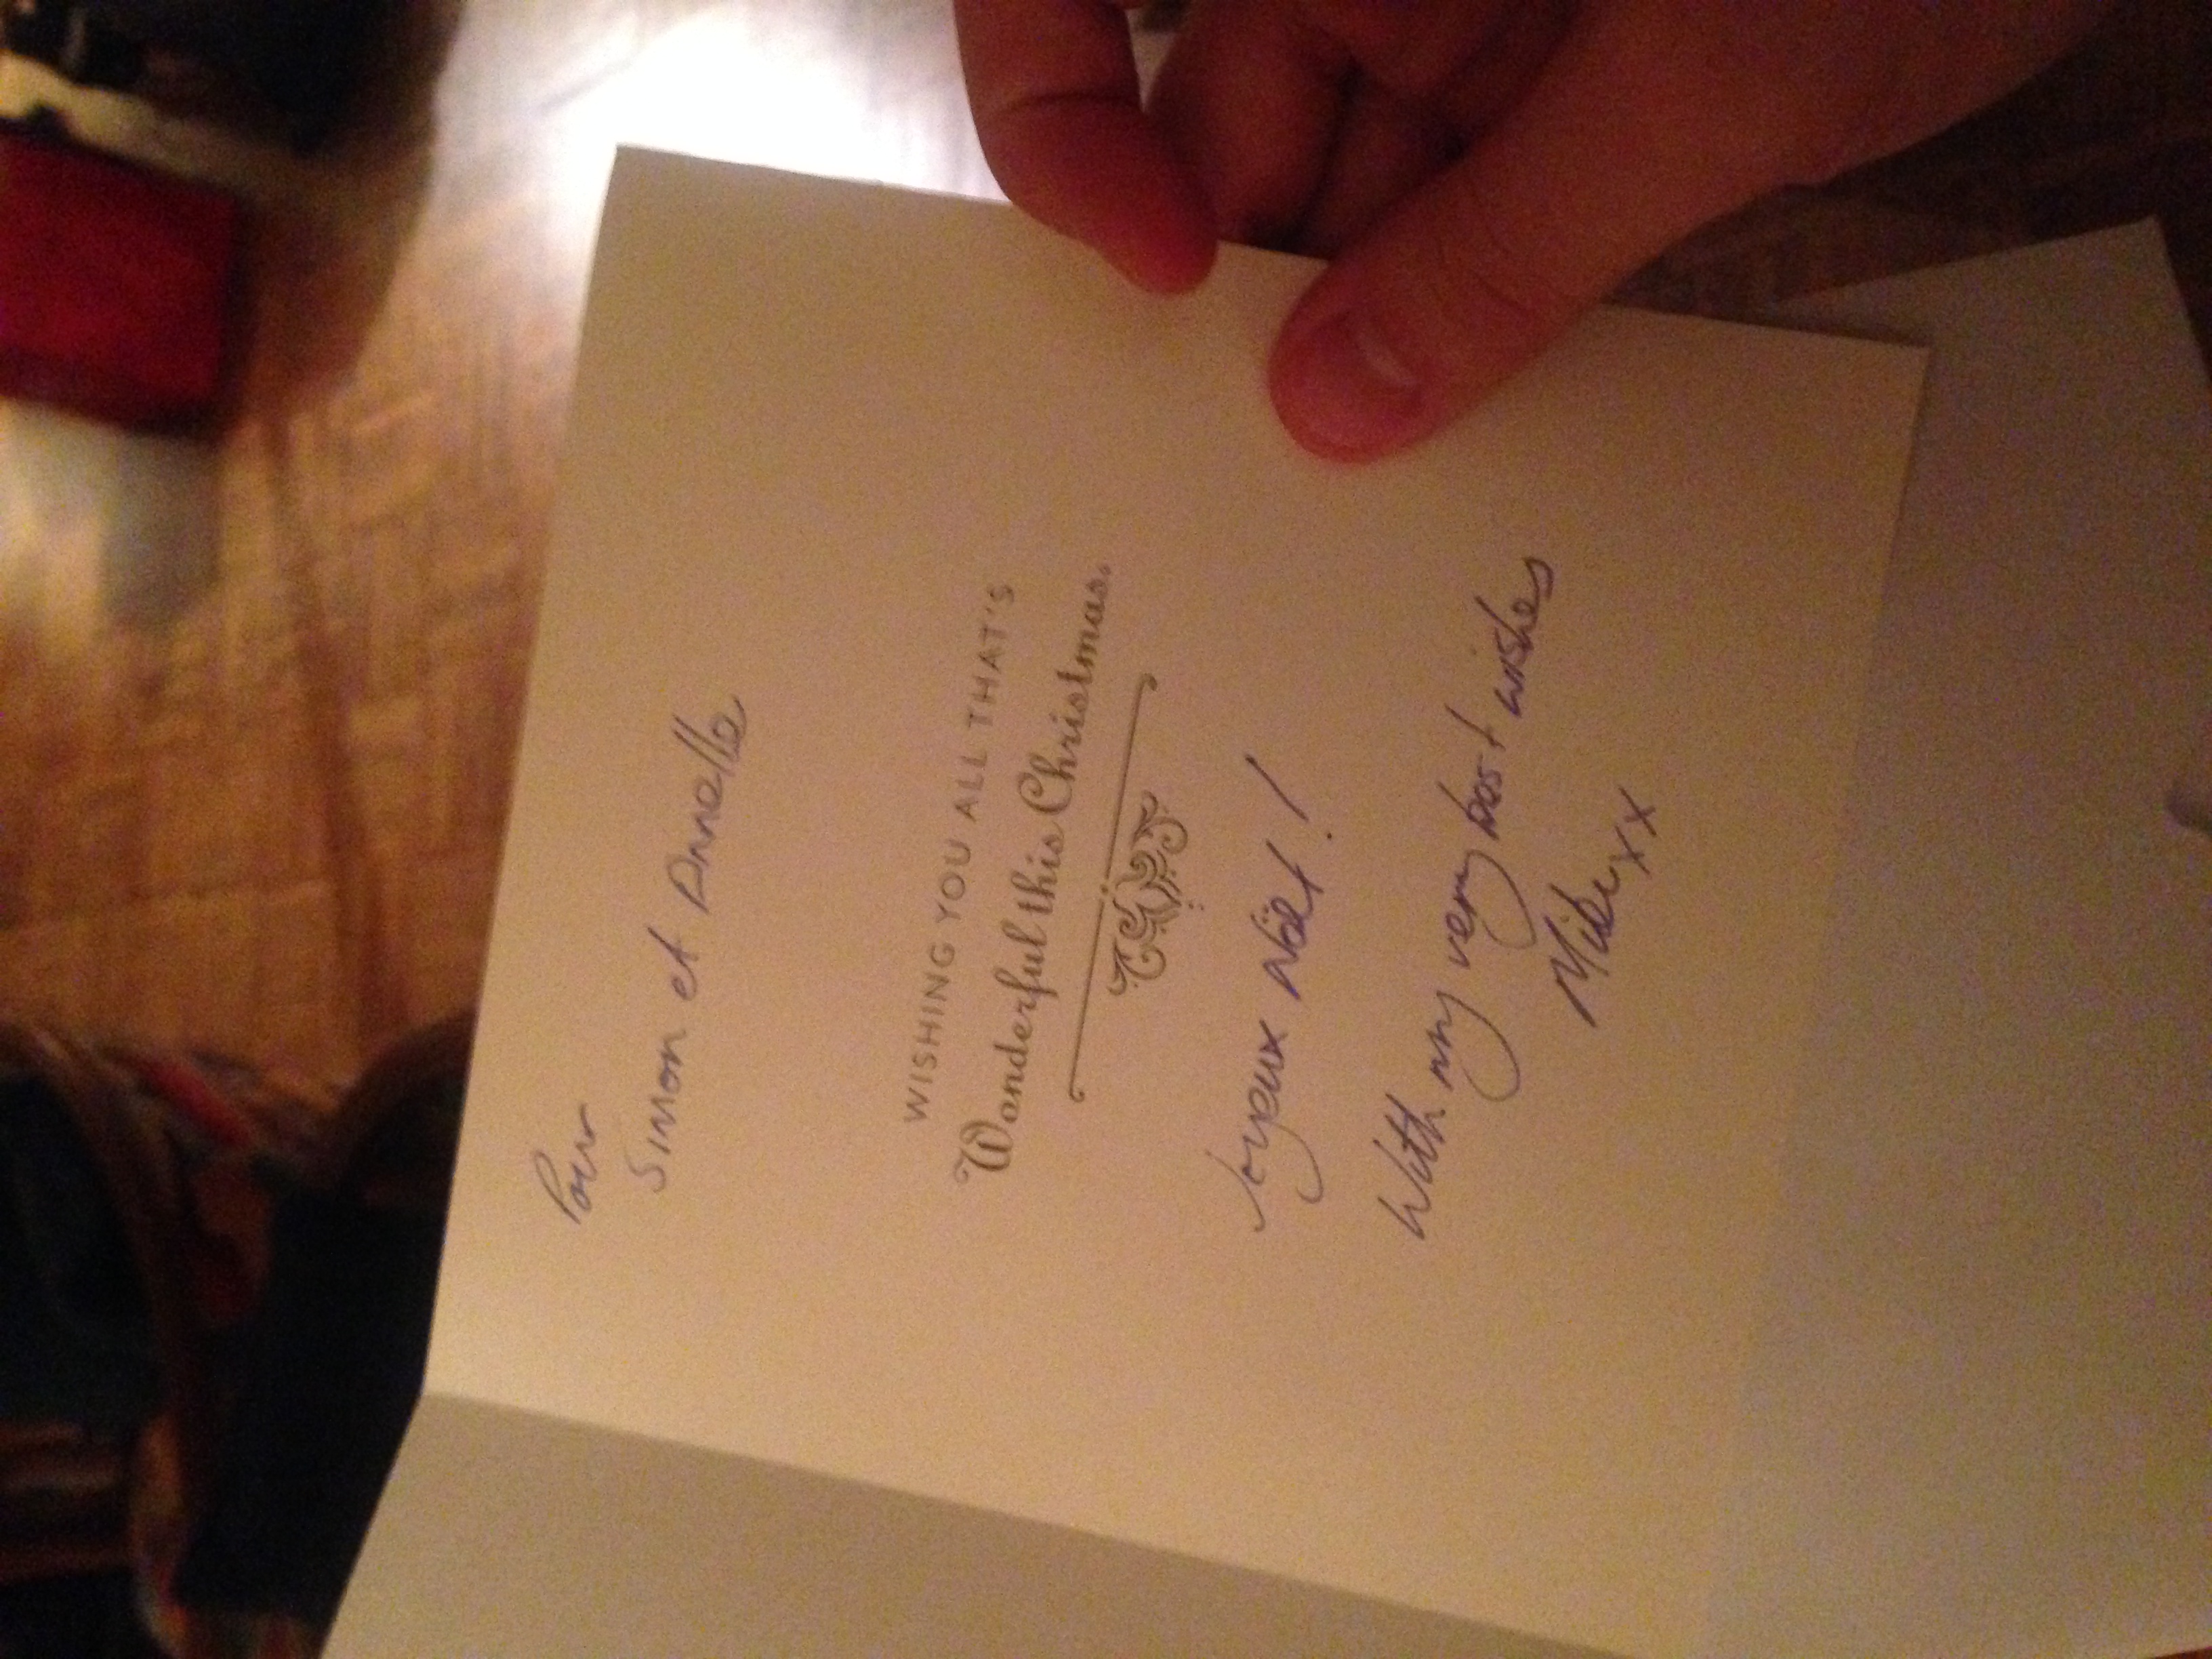 Pour
Simon et Annelle
WISHING YOU ALL THAT'S
Wonderful this Christmas.
Joyeux Nöel!
With my very best wishes
Mike xx